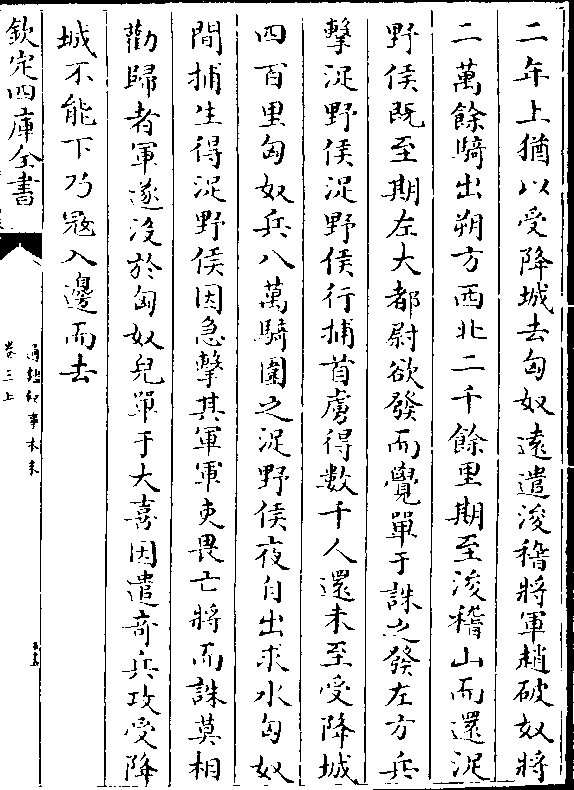 二年上猶以受降城去匈奴遠遣浚稽將軍趙破奴將
二萬餘騎出朔方西北二千餘里期至浚稽山而還浞
野侯既至期左大都尉欲發而覺單于誅之發左方兵
擊浞野侯浞野侯行捕首虜得數千人還未至受降城
四百里匈奴兵八萬騎圍之浞野侯夜自出求水匈奴
間捕生得浞野侯因急擊其軍軍吏畏亡將而誅莫相
勸歸者軍遂沒於匈奴兒單于大喜因遣奇兵攻受降
城不能下乃寇入邊而去
欽定四庫全書
通鑑紀事本末
卷三上